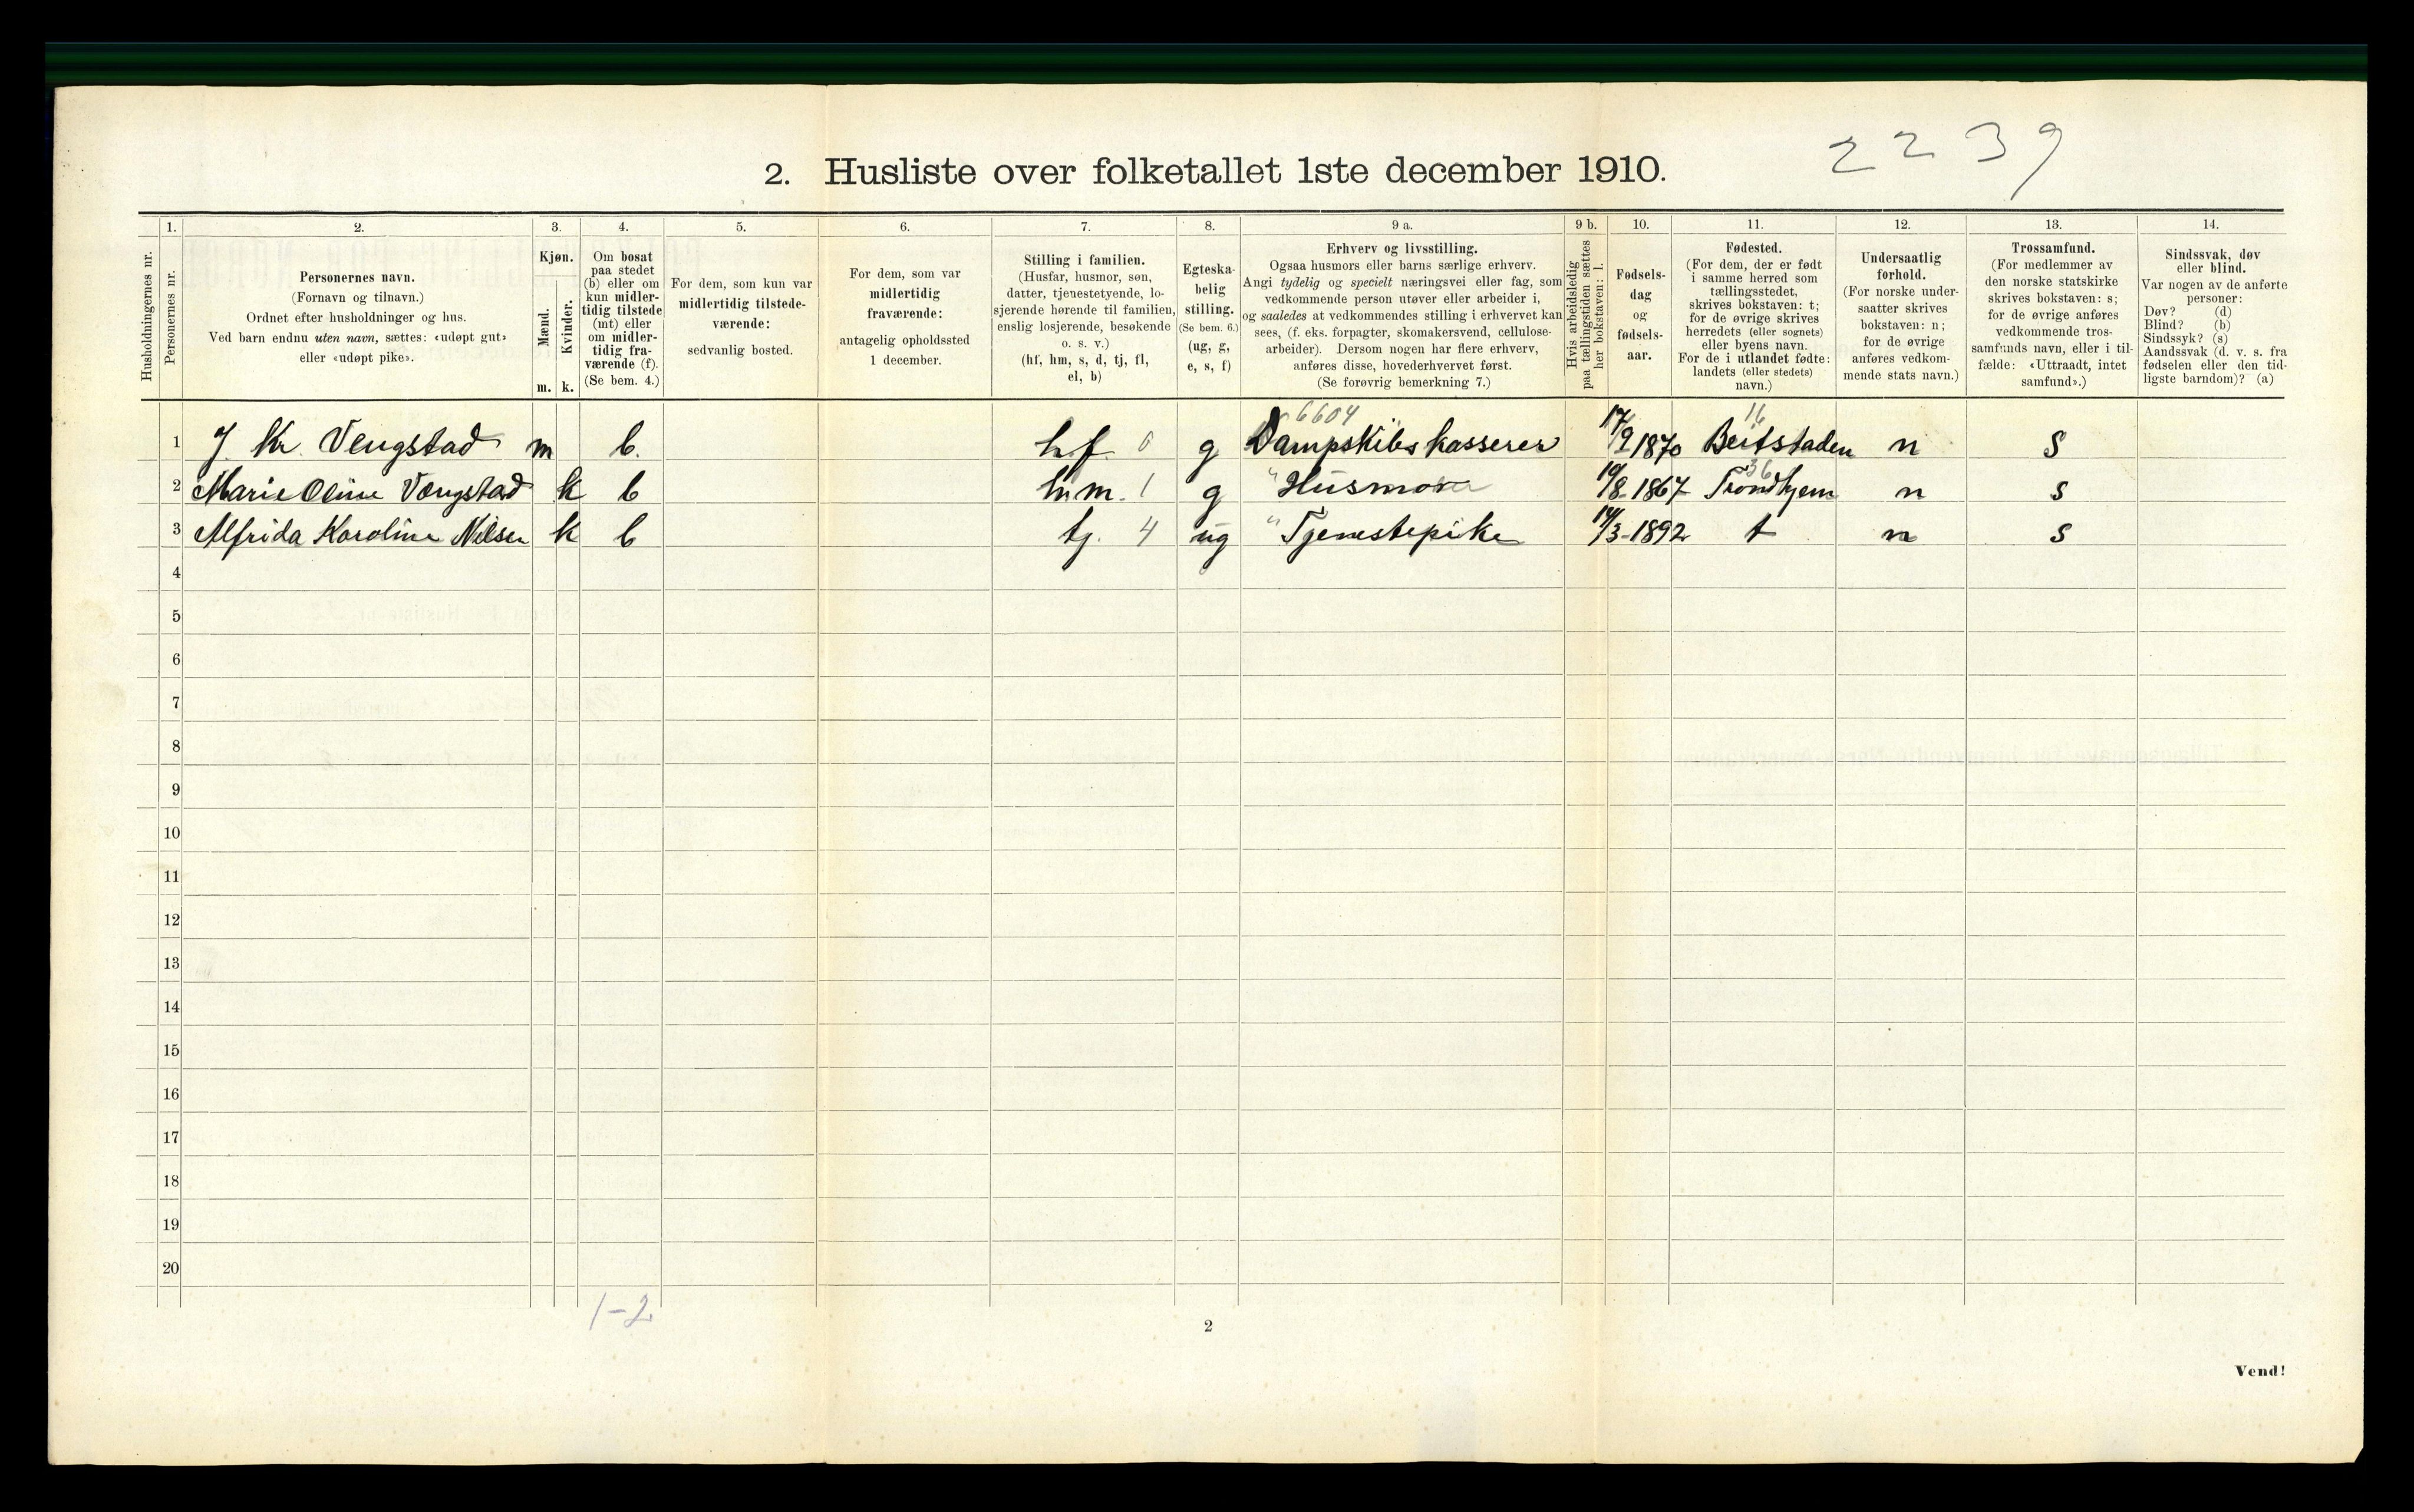 2239
2. Husliste over folketallet 1ste december 1910.
Husholdningernes nr.
1.
Personernes nr.
2.
Personernes navn.
(Fornavn og tilnavn.)
Ordnet efter husholdninger og hus.
Ved barn endnu uten navn, sættes: «udøpt gut»
eller «udøpt pike».
3.
Kjøn.
Mænd.
m.
Kvinder.
k.
4.
Om bosat
paa stedet
(b) eller om
kun midler-
tidig tilstede
(mt) eller
om midler-
tidig fra-
værende (f).
(Se bem. 4.)
5.
For dem, som kun var
midlertidig tilstede-
værende:
sedvanlig bosted.
6.
For dem, som var
midlertidig
fraværende:
antagelig opholdssted
1 december.
7.
Stilling i familien.
(Husfar, husmor, søn,
datter, tjenestetyende, lo-
sjerende hørende til familien,
enslig losjerende, besøkende
o. s. v.)
(hf, hm, s, d, tj, fl,
el, b)
8.
Egteska-
belig
stilling.
(Se bem. 6.)
(ug, g,
e, s, f)
9 a.
Erhverv og livsstilling.
Ogsaa husmors eller barns særlige erhverv.
Angi tydelig og specielt næringsvei eller fag, som
vedkommende person utøver eller arbeider i,
og saaledes at vedkommendes stilling i erhvervet kan
sees, (f. eks. forpagter, skomakersvend, cellulose-
arbeider). Dersom nogen har flere erhverv,
anføres disse, hovederhvervet først.
(Se forøvrig bemerkning 7.)
9 b.
Hvis arbeidsledig
paa tællingstiden sættes
her bokstaven: l.
10.
Fødsels-
dag
og
fødsels-
aar.
11.
Fødested.
(For dem, der er født
i samme herred som
tællingsstedet,
skrives bokstaven: t;
for de øvrige skrives
herredets (eller sognets)
eller byens navn.
For de i utlandet fødte:
landets (eller stedets)
navn.)
12.
Undersaatlig
forhold.
(For norske under-
saatter skrives
bokstaven: n;
for de øvrige
anføres vedkom-
mende stats navn.)
13.
Trossamfund.
(For medlemmer av
den norske statskirke
skrives bokstaven: s;
for de øvrige anføres
vedkommende tros-
samfunds navn, eller i til-
fælde: «Uttraadt, intet
samfund».)
14.
Sindssvak, døv
eller blind.
Var nogen av de anførte
personer:
Døv? (d)
Blind? (b)
Sindssyk? (s)
Aandssvak (d. v. s. fra
fødselen eller den tid-
ligste barndom)? (a)
6604 16
1 J. Kr. Vengstad m b. h.f. 0 g Dampskibskasserer 17/9 1870 Beitstaden n s
36
2 Marie Oline Vengstad k b h.m. 1 g " Husmor 19/8-1867 Trondhjem n s
3 Alfrida Karoline Nilsen k b tj. 4 ug " Tjenestepike 14/3-1892 t n s
4
5
6
7
8
9
10
11
12
13
14
15
16
17
18
19
20
1-2
2
Vend!